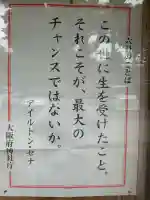 今月のことば
この世に生を受けたこと、
それこそが、最大の
チャンスではないか。
アイルトン・セナ
大阪府神社庁